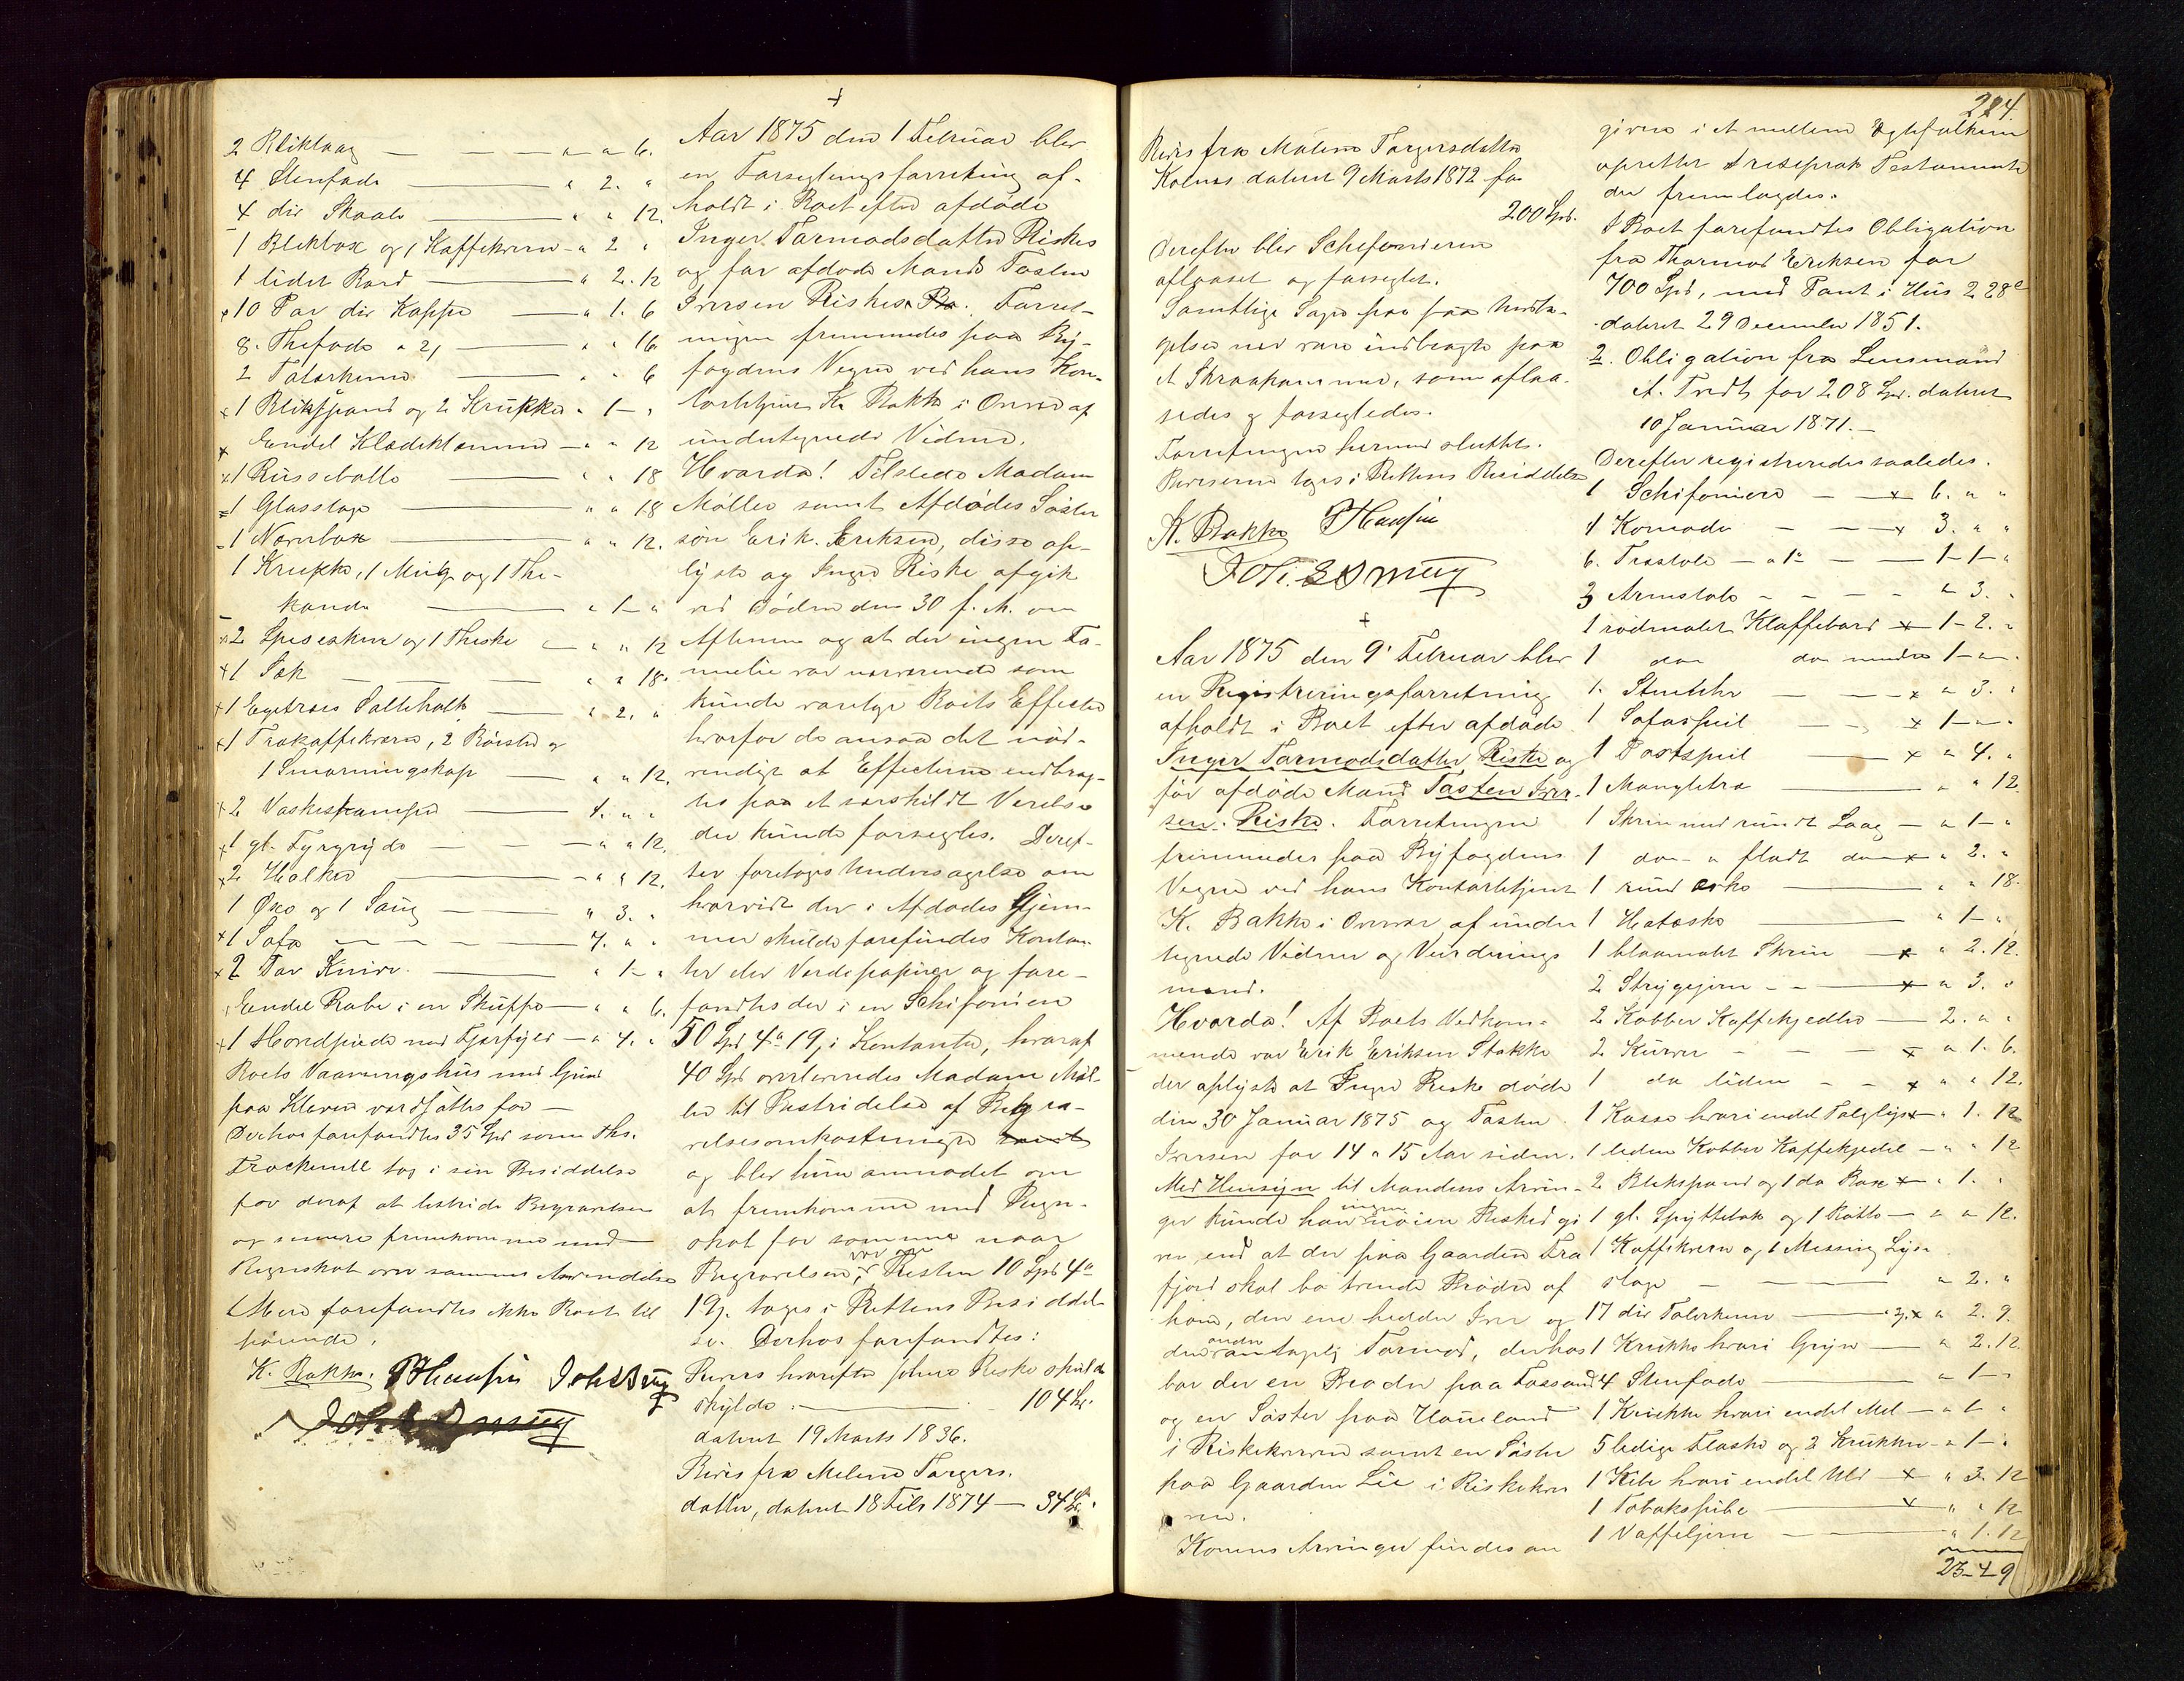 2 Bliklaag — — — " " 6.
4 Stenfade — " 2. "
4 dir Skaale — " " 12.
1 Blikboxe og 1 Kaffekvern - " 2 "
1 lidet Bord — " 2. 12
10 Par dir Kopper — " 1. 6
8. Thefade a 2/ — " " 16
2 Talerkener — " " 6
1 Blikspand og 2 Krukker " 1 - "
Endel Klædeklemmer — " " 12
1 Russebolle — " " 18
1 Glasslage — " " 18
1 Navrebox — " " 12.
1 Krukke, 1 Mug og 1 The-
kande — " 1 - "
2 Spiseskeer og 1 Theske — " " 12
1 Sæk — " " 18.
1 Egetræes Balle — " 2. "
1 Trækaffekvern, 2 Börster og
1 Smörningskop — " " 12.
2 Vaskestamper — 1. " "
1 gl. Fyrgryde — " " 12.
2 Holker — " " 12.
1 Öxe og 1 Saug — " 3. "
1 Sofa — 4. " "
2 Par Knive. — " 1 - "
Endel Rabe i en Skuffe — " " 6.
1 Hovedpude med Fjærfyld — " 4. "
Boets Vaaningshus med Grund
paa Kleven værdsattes for —
Derhos forefandtes 35 Spd som Ths.
Trockenell tog i sin Besiddelse
for deraf at bestride Begravelsen
og senere fremkomme med
Regnskab over sammes Anvendelse
Mere forefandtes ikke Boet til
hörende.
K. Bakke. P Hansen Joh S Smug
Joh S Smug
Aar 1875 den 1 Februar blev
en Forseglingsforretning af-
holdt i Boet efter afdöde
Inger Tormodsdatter Riskes
og før afdøde Mand Tosten
Iversen Riskes Bo. Forret-
ningen fremmedes paa By-
fogdens Vegne ved hans Kon-
torbetjent K. Bakke i Overvær af
undertegnede Vidner.
Hvorda! Tilstede Madam
Möller samt Afdödes Söster
sön Erik Eriksen, disse op-
lyste at Inger Riske afgik
ved Döden den 30 f. M. om
Aftenen og at der ingen Fa-
milie var nærværende som
kunde varetage Boets Effecter
hvorfor de ansaa det nöd-
vendigt at Effecterne indbrag-
tes paa et særskildt Værelse
der kunde forsegles. Deref-
ter foretoges Undersøgelse om
hvorvidt der i Afdödes Gjem-
mer skulde forefindes Kontan-
ter eller Værdipapirer og fore-
fandtes der i en Schifonier
50 Spd 4 19, i Kontanter, hvoraf
40 Spd overleveredes Madam Möl-
ler til Bestridelse af Begra-
velsesomkostninger samt
og blev hun anmodet om
at fremkomme med Regn-
skab for samme naar
Begravelsen var over, Resten 10 Spd 4
19. toges i Rettens Besiddel-
se. Derhos forefandtes:
Bevis hvorefter Johns Riske skulde
skylde: — 104 Spd.
dateret 19 Marts 1836.
Bevis fra Melene Torgers-
datter, dateret 18 Febr 1874 — 34
224.
Bevis fra Malene Torgersdatter
Kolnes dateret 9 Marts 1872 for
200 Spd.
Derefter blev Schefonieren
aflaaset og forseglet.
Samtlige Sager paa faa Undta-
gelser nær vare indbragte paa
et Skraakammer, som aflaa-
sedes og forsegledes.
Forretningen hermed sluttet.
Beviserne toges i Rettens Besiddelse
K. Bakke P Hansen
Joh. S Smug
Aar 1875 den 9' Februar blev
en Registreringsforretning
afholdt i Boet efter afdöde
Inger Tormodsdatter Riske og
før afdøde Mand Tosten Iver-
sen Riske. Forretningen
fremmedes paa Byfogdens
Vegne ved hans Kontorbetjent
K. Bakke i Overvær af under
tegnede Vidner og Vurderings
mænd.
Hvorda! Af Boets Vedkom-
mende var Erik Eriksen Stokke
der oplyste at Inger Riske döde
den 30 Januar 1875 og Tosten
Iversen for 14 a 15 Aar siden.
Med Hensyn til Mandens Arvin-
ger kunde han ingen nöien Besked gi
ve, end at der paa Gaarden Fra
fjord skal bo trende Brödre af
ham, den ene hedder Iver og
den anden antagelig Tormod, derhos
bor der en Broder paa Fossand
og en Söster paa Haueland
i Riskekveren samt en Söster
paa Gaarden Lie i Riskekve
ren.
Konens Arvinger findes an
givne i et mellem Ægtefolkene
oprettet Testamente
der fremlagdes.
I Boet forefandtes Obligation
fra Thormod Eriksen for
700 Spd, med Pant i Hus 228
dateret 29 December 1851.
2. Obligation fra Lensmand
A. Tredt for 208 Spd. dateret
10 Januar 1871. —
Derefter registreredes saaledes.
1 Schifoniere — x 6. " "
1 Komode — x 3. " "
6. Træstole — " 1 — 1 - 1 - "
3 Armstole — " 3. "
1 rödmalet Klaffebord x 1 - 2. "
1 do do mindre 1 - " -
1. Stueuhr — x " 3. "
1 Sofaspeil — x 1 - " -
1 speil — x " 4. "
1 Mangletræ — " " 12
1 Skrin med rundt Laag — " 1 - "
1 do - " fladt do x " 2. "
1 rund æske — " " 18.
1 Hatæske — " 1 - "
1 blaamalet Skrin — x " 2. 12.
2 Strygejern — x " 3. "
2 Kobber Kaffekjedler — 2. " "
2 Kurve — x " 1. 6.
1 do liden — x " " 12.
1 Kasse hvori endel Talglys x " 1. 12
1 liden Kobber Kaffekjedel — " " 12
2 Blikspand og 1 do Boxe x " 1. "
1 gl. Spyttebak og 1 Bötte — " " 12.
1 Kaffekvern og 1 Messing Lyse
stage — " 2. "
17 dir Talerkener — " 3. x " 2. 9.
1 Krukke hvori Gryn — " 2. 12.
4 Stenfade — " 1 -
1 Krukke hvori endel Mel — " 1 "
5 ledige Flasker og 2 Krukker — " 1 - "
1 Kibe hvori endel Uld x " 3. 12
1 Tobakspibe — x " " 12
1 Vaffeljern — " 1. 12
23 - 4 - 9